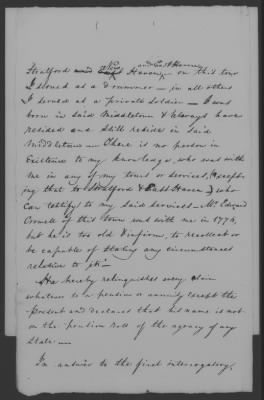 New and East Haven
Stratford and East Haven, on this tour
I served as a drummer — in all others
I served as a private soldier — I was
born in said Middletown & always have
resided and still reside in said
Middletown — There is no person in
Existence to my knowledge who was with
me in any of my tours or services, (except-
ing that to Stratford & East Haven) who
can testify to my said services — Mr. Edward
Cornell of this town was with me in 1776,
but he is too old & infirm, to recollect or
be capable of stating any circumstances
relative to it. —
He hereby relinquishes every claim
whatever to a pension or annuity except the
present and declares that his name is not
on the pension Roll of the agency of any
State. —
In answer to the first interrogatory,